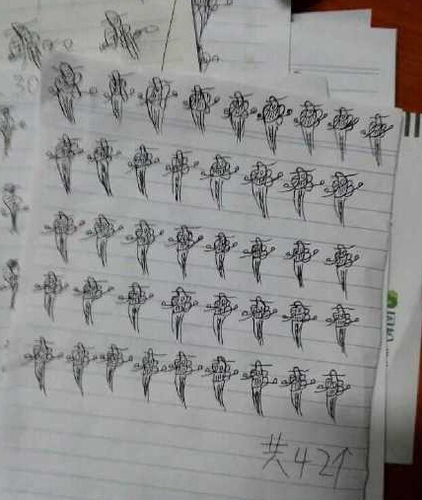 30
共42个